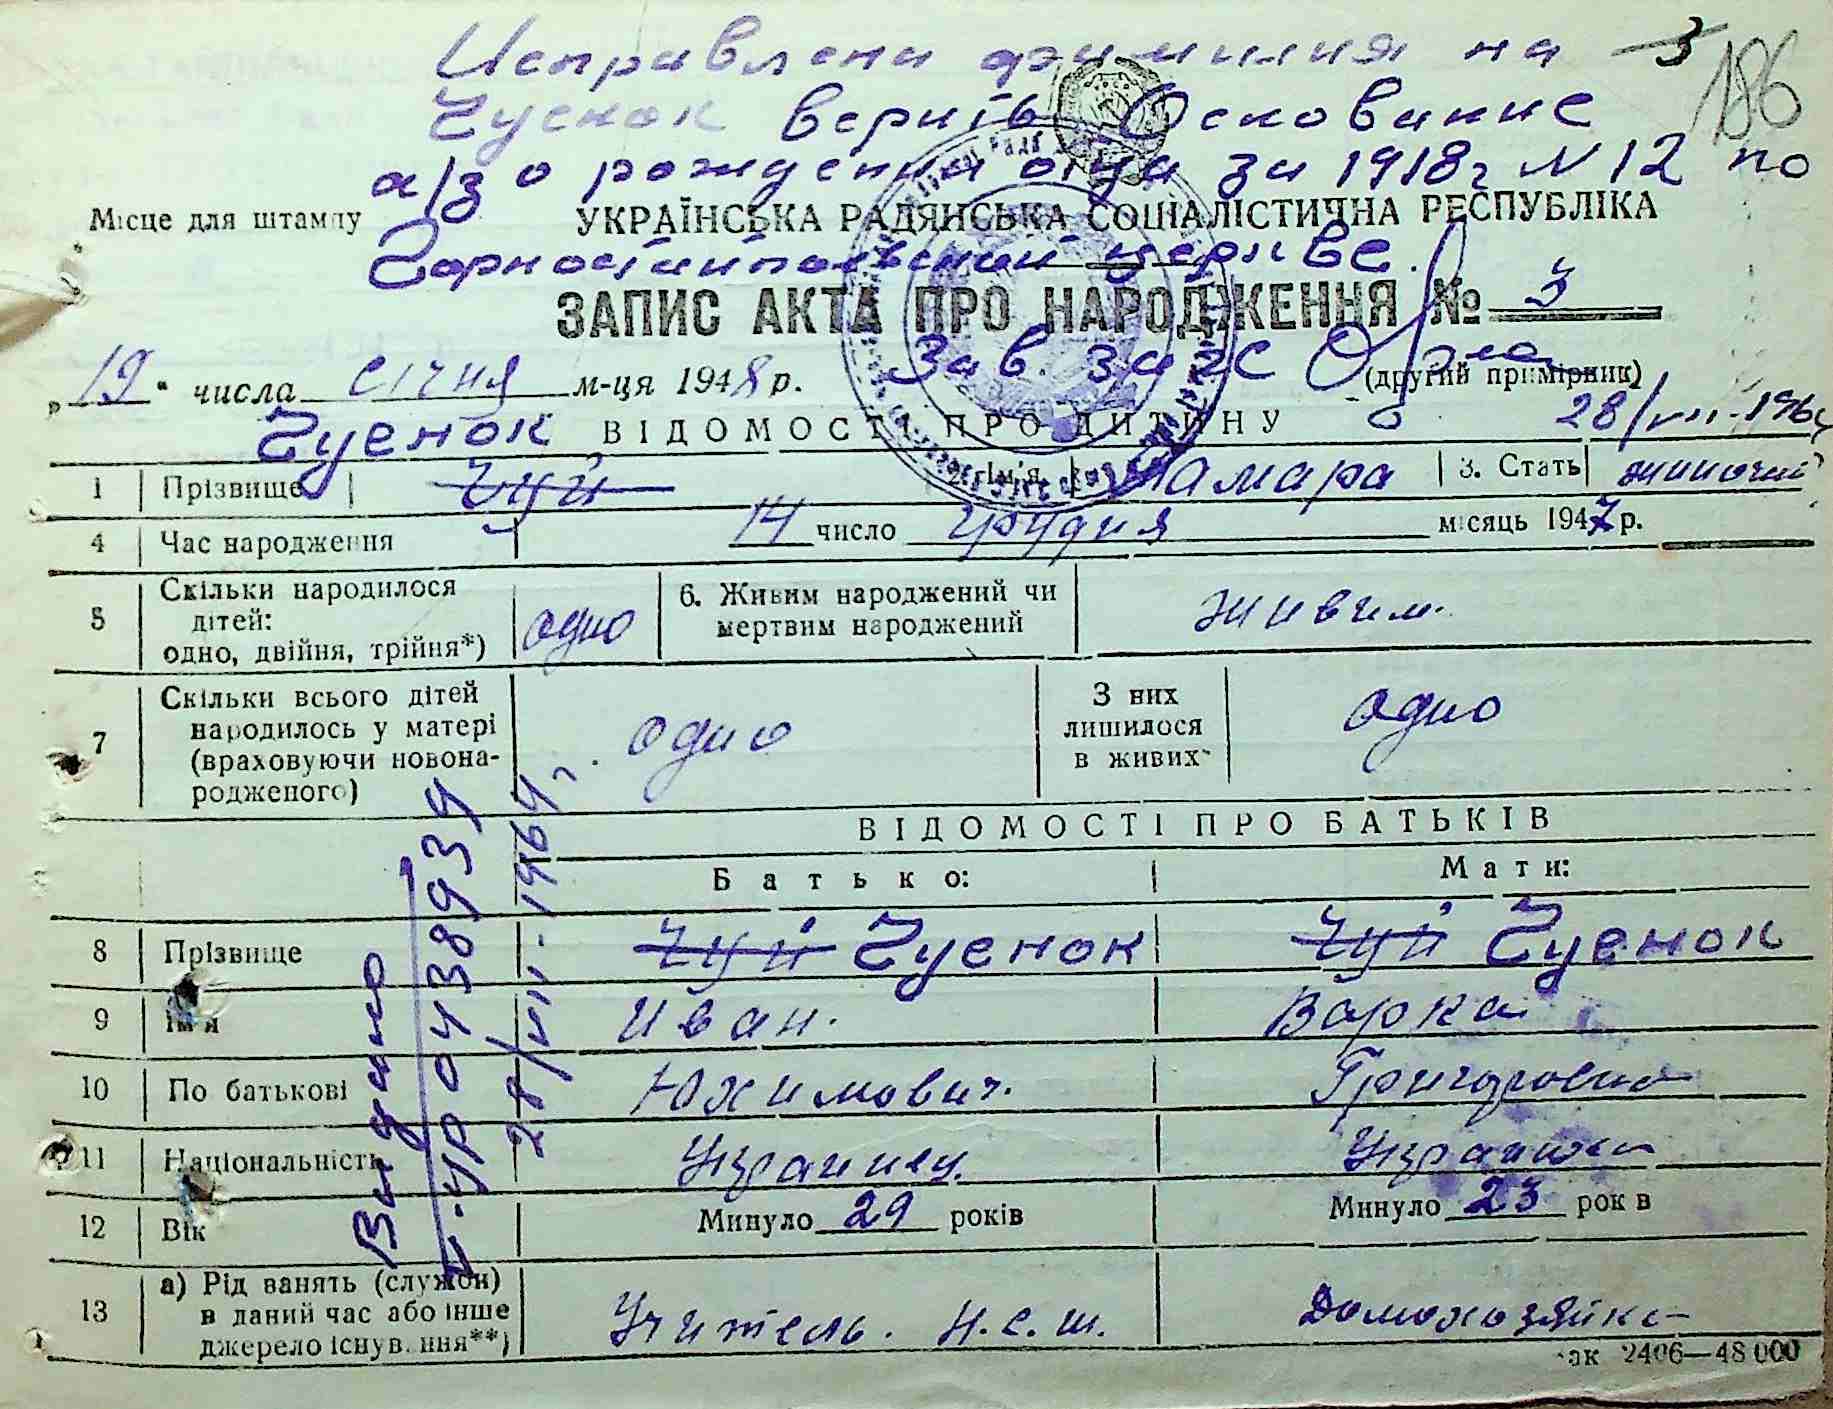 Исправлена фамилия на З
186
Чуенок верить Основание
а/з о рождении отца за 1918г N 12 по
Місце для штампу
УКРАЇНСЬКА РАДЯНСЬКА СОЦІАЛІСТИЧНА РЕСПУБЛІКА
Горностайпольской церкве.
ЗАПИС АКТА ПРО НАРОДЖЕННЯ № 3
Зав. загс
(другий примірник)
„19“ числа січня м-ця 1948 р.
28/VII-1964
Чуенок
ВІДОМОСТІ ПРО ДИТИНУ
1 Прізвище Чуй Ім'я Тамара 3. Стать жиночий
4 Час народження 14 число грудня місяць 1947 р.
5 Скільки народилося дітей: одно, двійня, трійня*) одно 6. Живим народжений чи мертвим народжений живим.
7 Скільки всього дітей народилось у матері (враховуючи новонародженого) одно З них лишилося в живих одно
ВІДОМОСТІ ПРО БАТЬКІВ
Батько: Мати:
8 Прізвище Чуй Чуенок Чуй Чуенок
9 Ім'я Иван. Варка
10 По батькові Юхимович. Григоровна
11 Національність Украинец. Украинка
12 Вік Минуло 29 років Минуло 23 років
13 а) Рід занять (служби) в даний час або інше джерело існування**) Учитель. Н.с.ш. Домохозяйка
Выдано
УР 0438939
28/VII-1964 г.
зак 2406—48 000